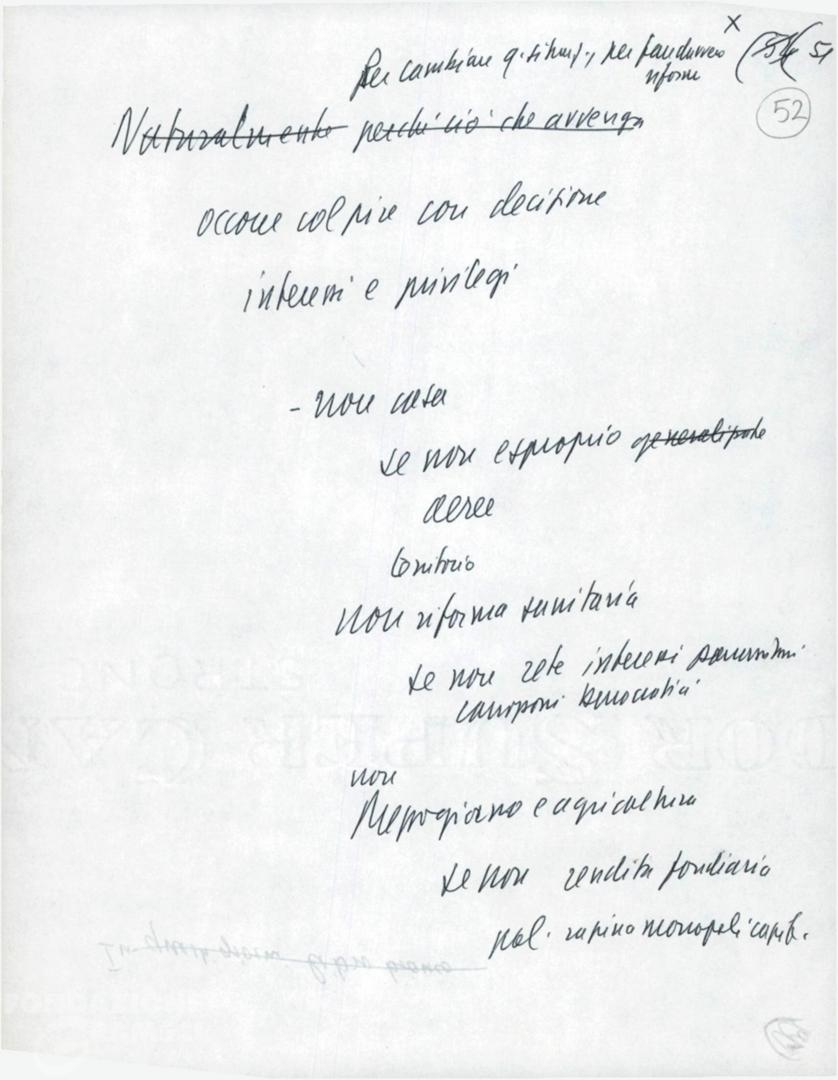 x
Per cambiare q. situaz., per fare davvero 51
riforme
52
Naturalmente perché ciò che avvenga
occorre colpire con decisione
interessi e privilegi
- non casa
se non esproprio generalizzato
aree
territorio
non riforma sanitaria
se non rete interessi
carrozzoni burocratici
non
Mezzogiorno e agricoltura
se non rendita fondiaria
pol. rapina monopoli capit.